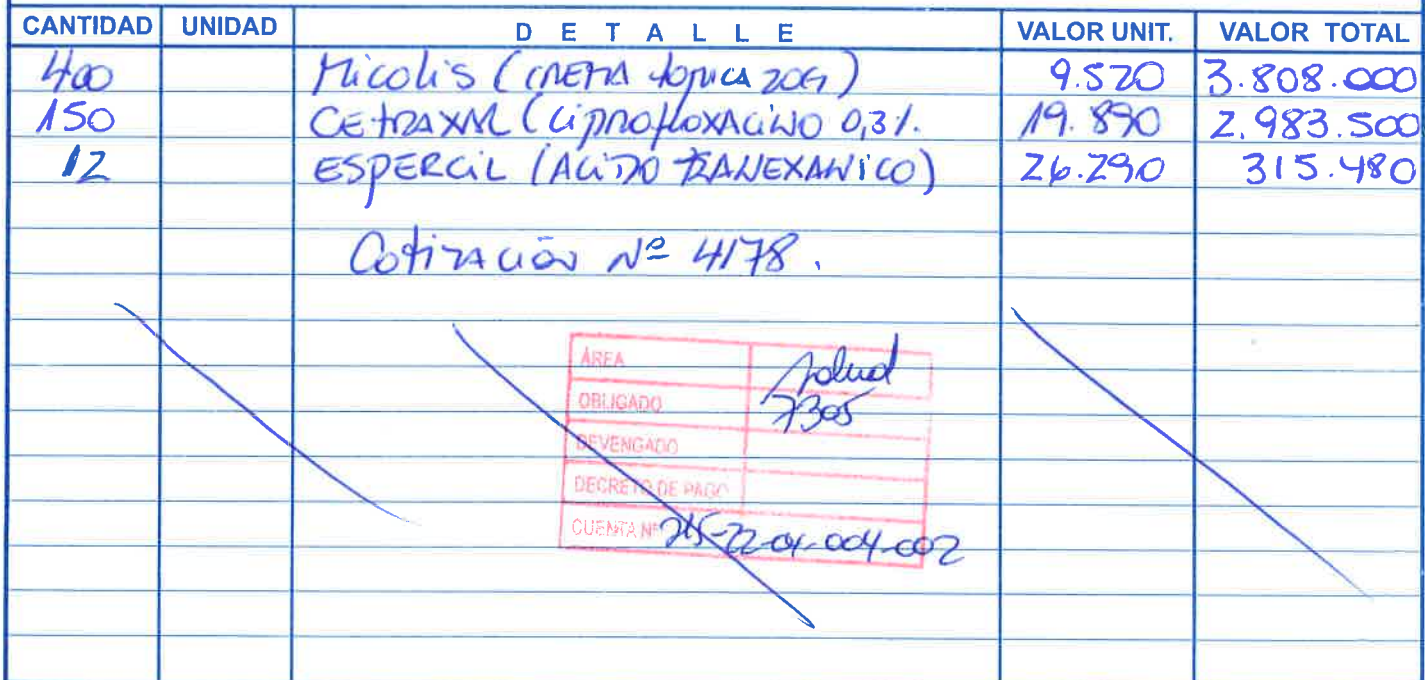 CANTIDAD UNIDAD DETALLE VALOR UNIT. VALOR TOTAL
400 Micolis (CREMA topica 20G) 9.520 3.808.000
150 CEtRAXAL (CiproflOXACiNO 0,3%. 19.890 2.983.500
12 ESPERCiL (ACiDO TRANEXANiCO) 26.290 315.480
Cotización Nº 4178.
ÁREA Salud
OBLIGADO 7305
DEVENGADO
DECRETO DE PAGO
CUENTA Nº 215-22-04-004-002